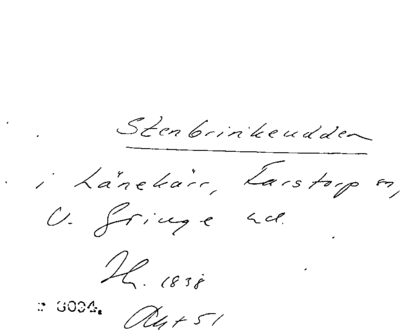 Stenbrinkeudden
i Länekärr, Karstorp sn,
V. Göinge hd.
Jh. 1838
r 3034.
Akt 51